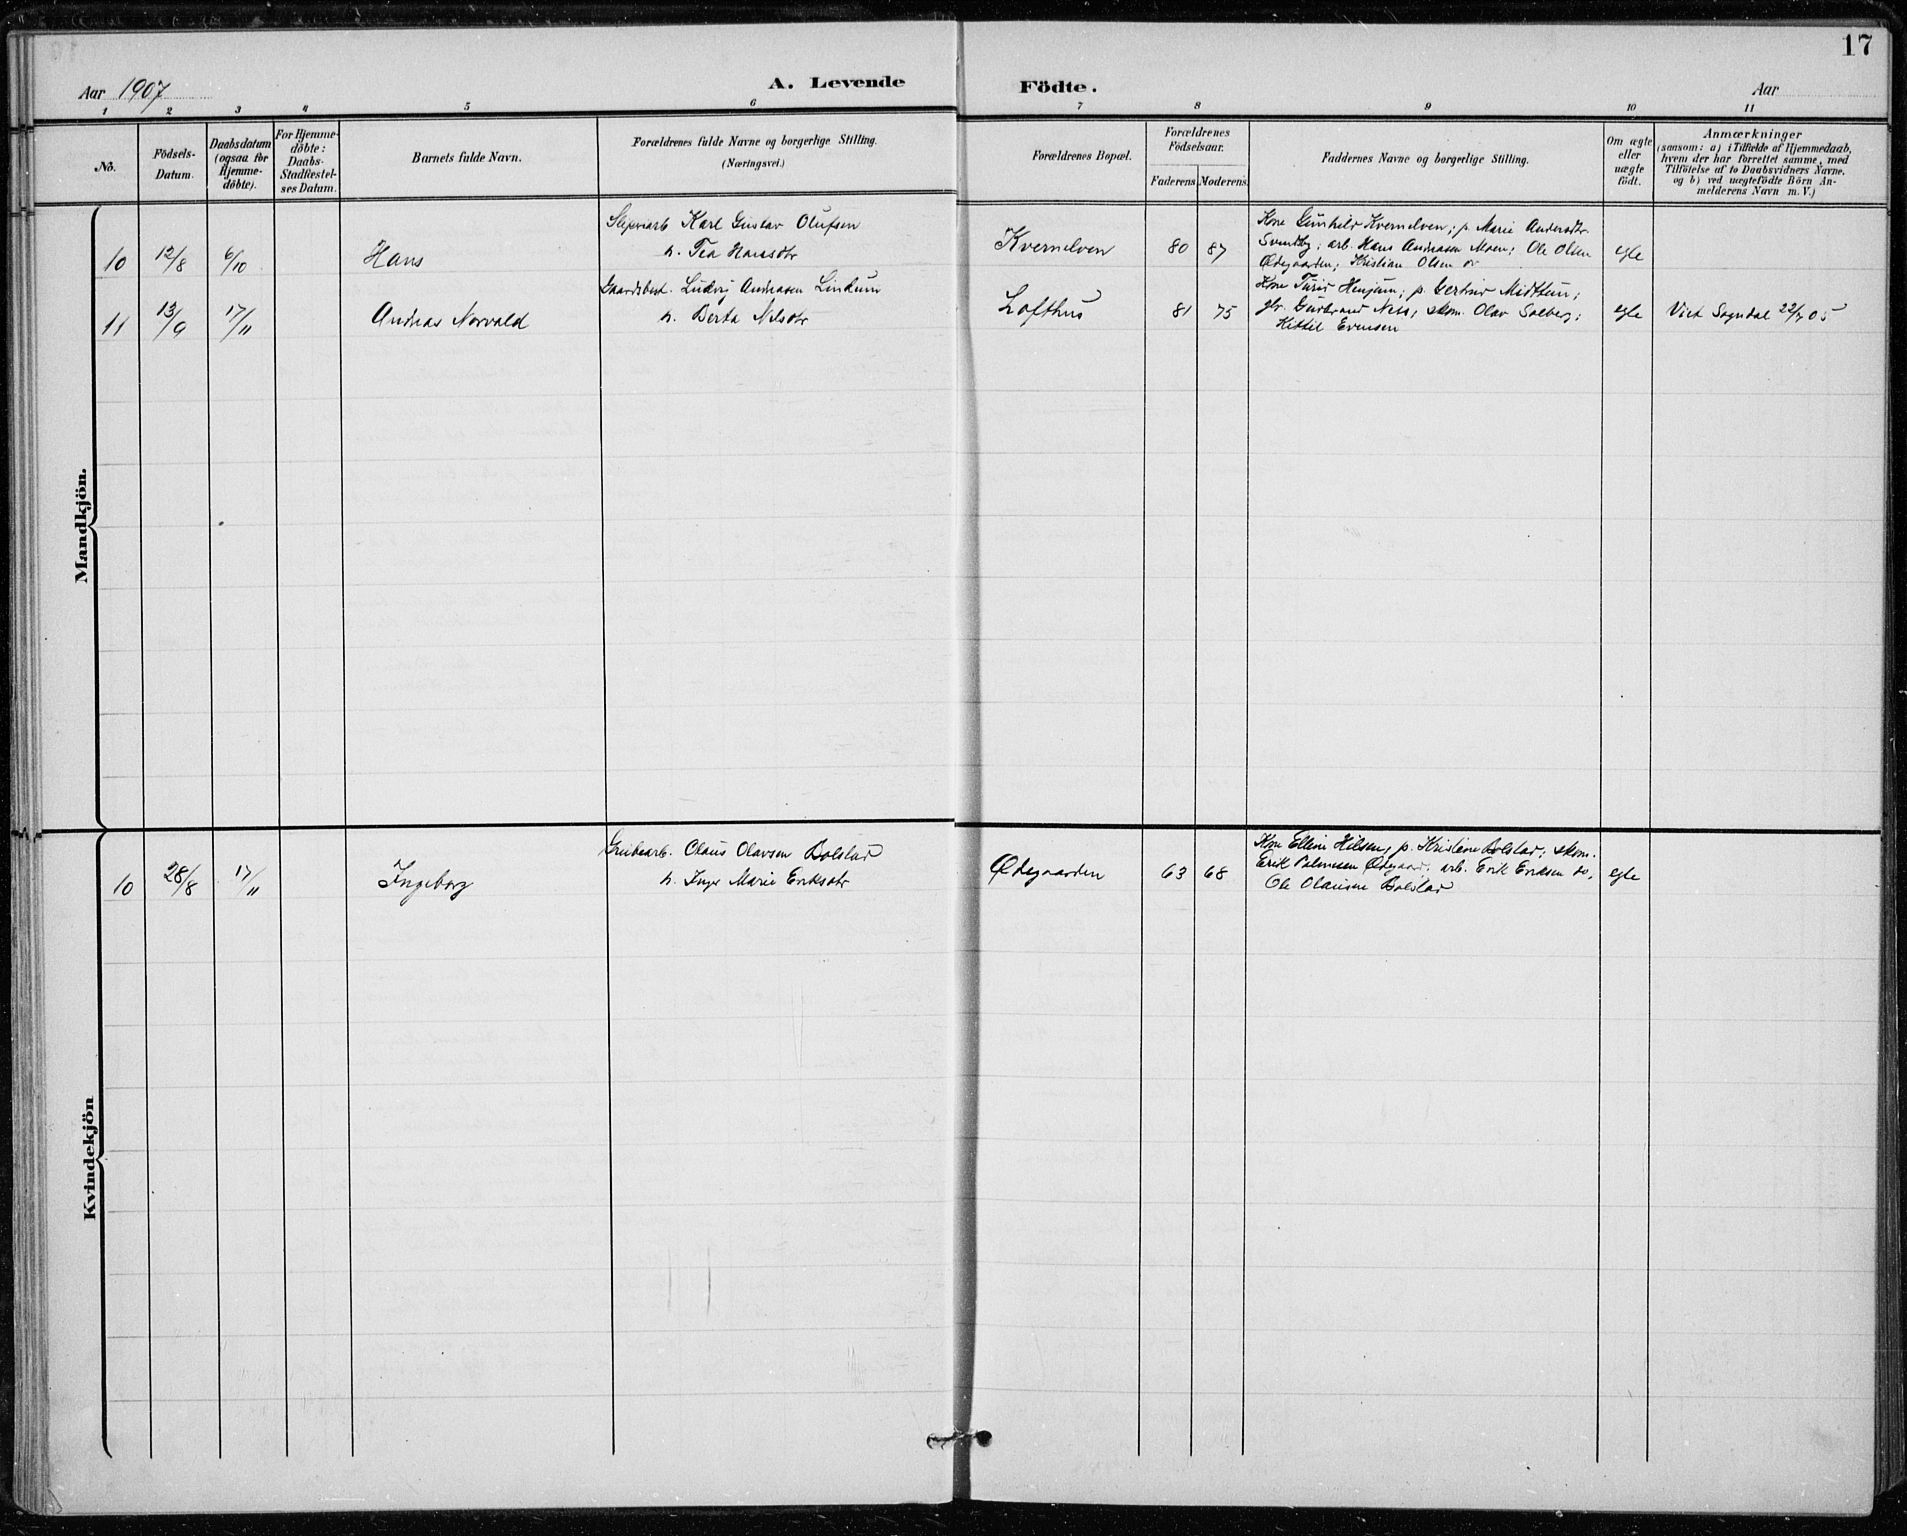 17
Aar 1907
A. Levende Födte.
Aar
1 2 3 4 5 6 7 8 9 10 11
No.
Födsels-Datum.
Daabsdatum (ogsaa for Hjemme-döbte).
For Hjemme-döbte: Daabs-Stadfestel-ses Datum.
Barnets fulde Navn.
Forældrenes fulde Navne og borgerlige Stilling.
(Næringsvei.)
Forældrenes Bopæl.
Forældrenes Födselsaar.
Faderens Moderens
Faddernes Navne og borgerlige Stilling.
Om ægte eller uægte födt.
Anmærkninger
(saasom: a) i Tilfælde af Hjemmedaab,
hvem der har forrettet samme, med
Tilföielse af to Daabsvidners Navne.
og b) ved uægtefödte Börn An-
melderens Navn m. V.)
Mandkjön.
10 12/8 6/10 Hans
Karl Gustav Olufsen
h. Tea Hansdtr
Kvernelven 80 87
Kone Gunhild Kvernelven; p. Marie Andersdtr.
Svendby; arb. Hans Andreasen Moen; Ole Olsen
Ødegaarden; Kristian Olsen
egte
11 13/9 17/11 Andreas Norvald
Gaardsbest. Ludvig Andreasen Linkum
h. Berta Nilsdtr
Lofthus 81 75
Kone Turid Henjum; p. Gertrud Midttun;
Gudbrand Ness; skom. Olav Solberg;
Kittil Evensen
egte
Viet Sogndal 22/7 05
Kvindekjön
10 28/8 17/11 Ingeborg
Grubearb. Olaus Olavsen Bolstad
h. Inger Marie Eriksdtr
Ødegaarden 63 68
Kone Ellen Nilsen; p. Kristine Bolstad; skom.
Erik Ødegaard; arb. Erik Eriksen do;
Ole Olausen Bolstad
egte